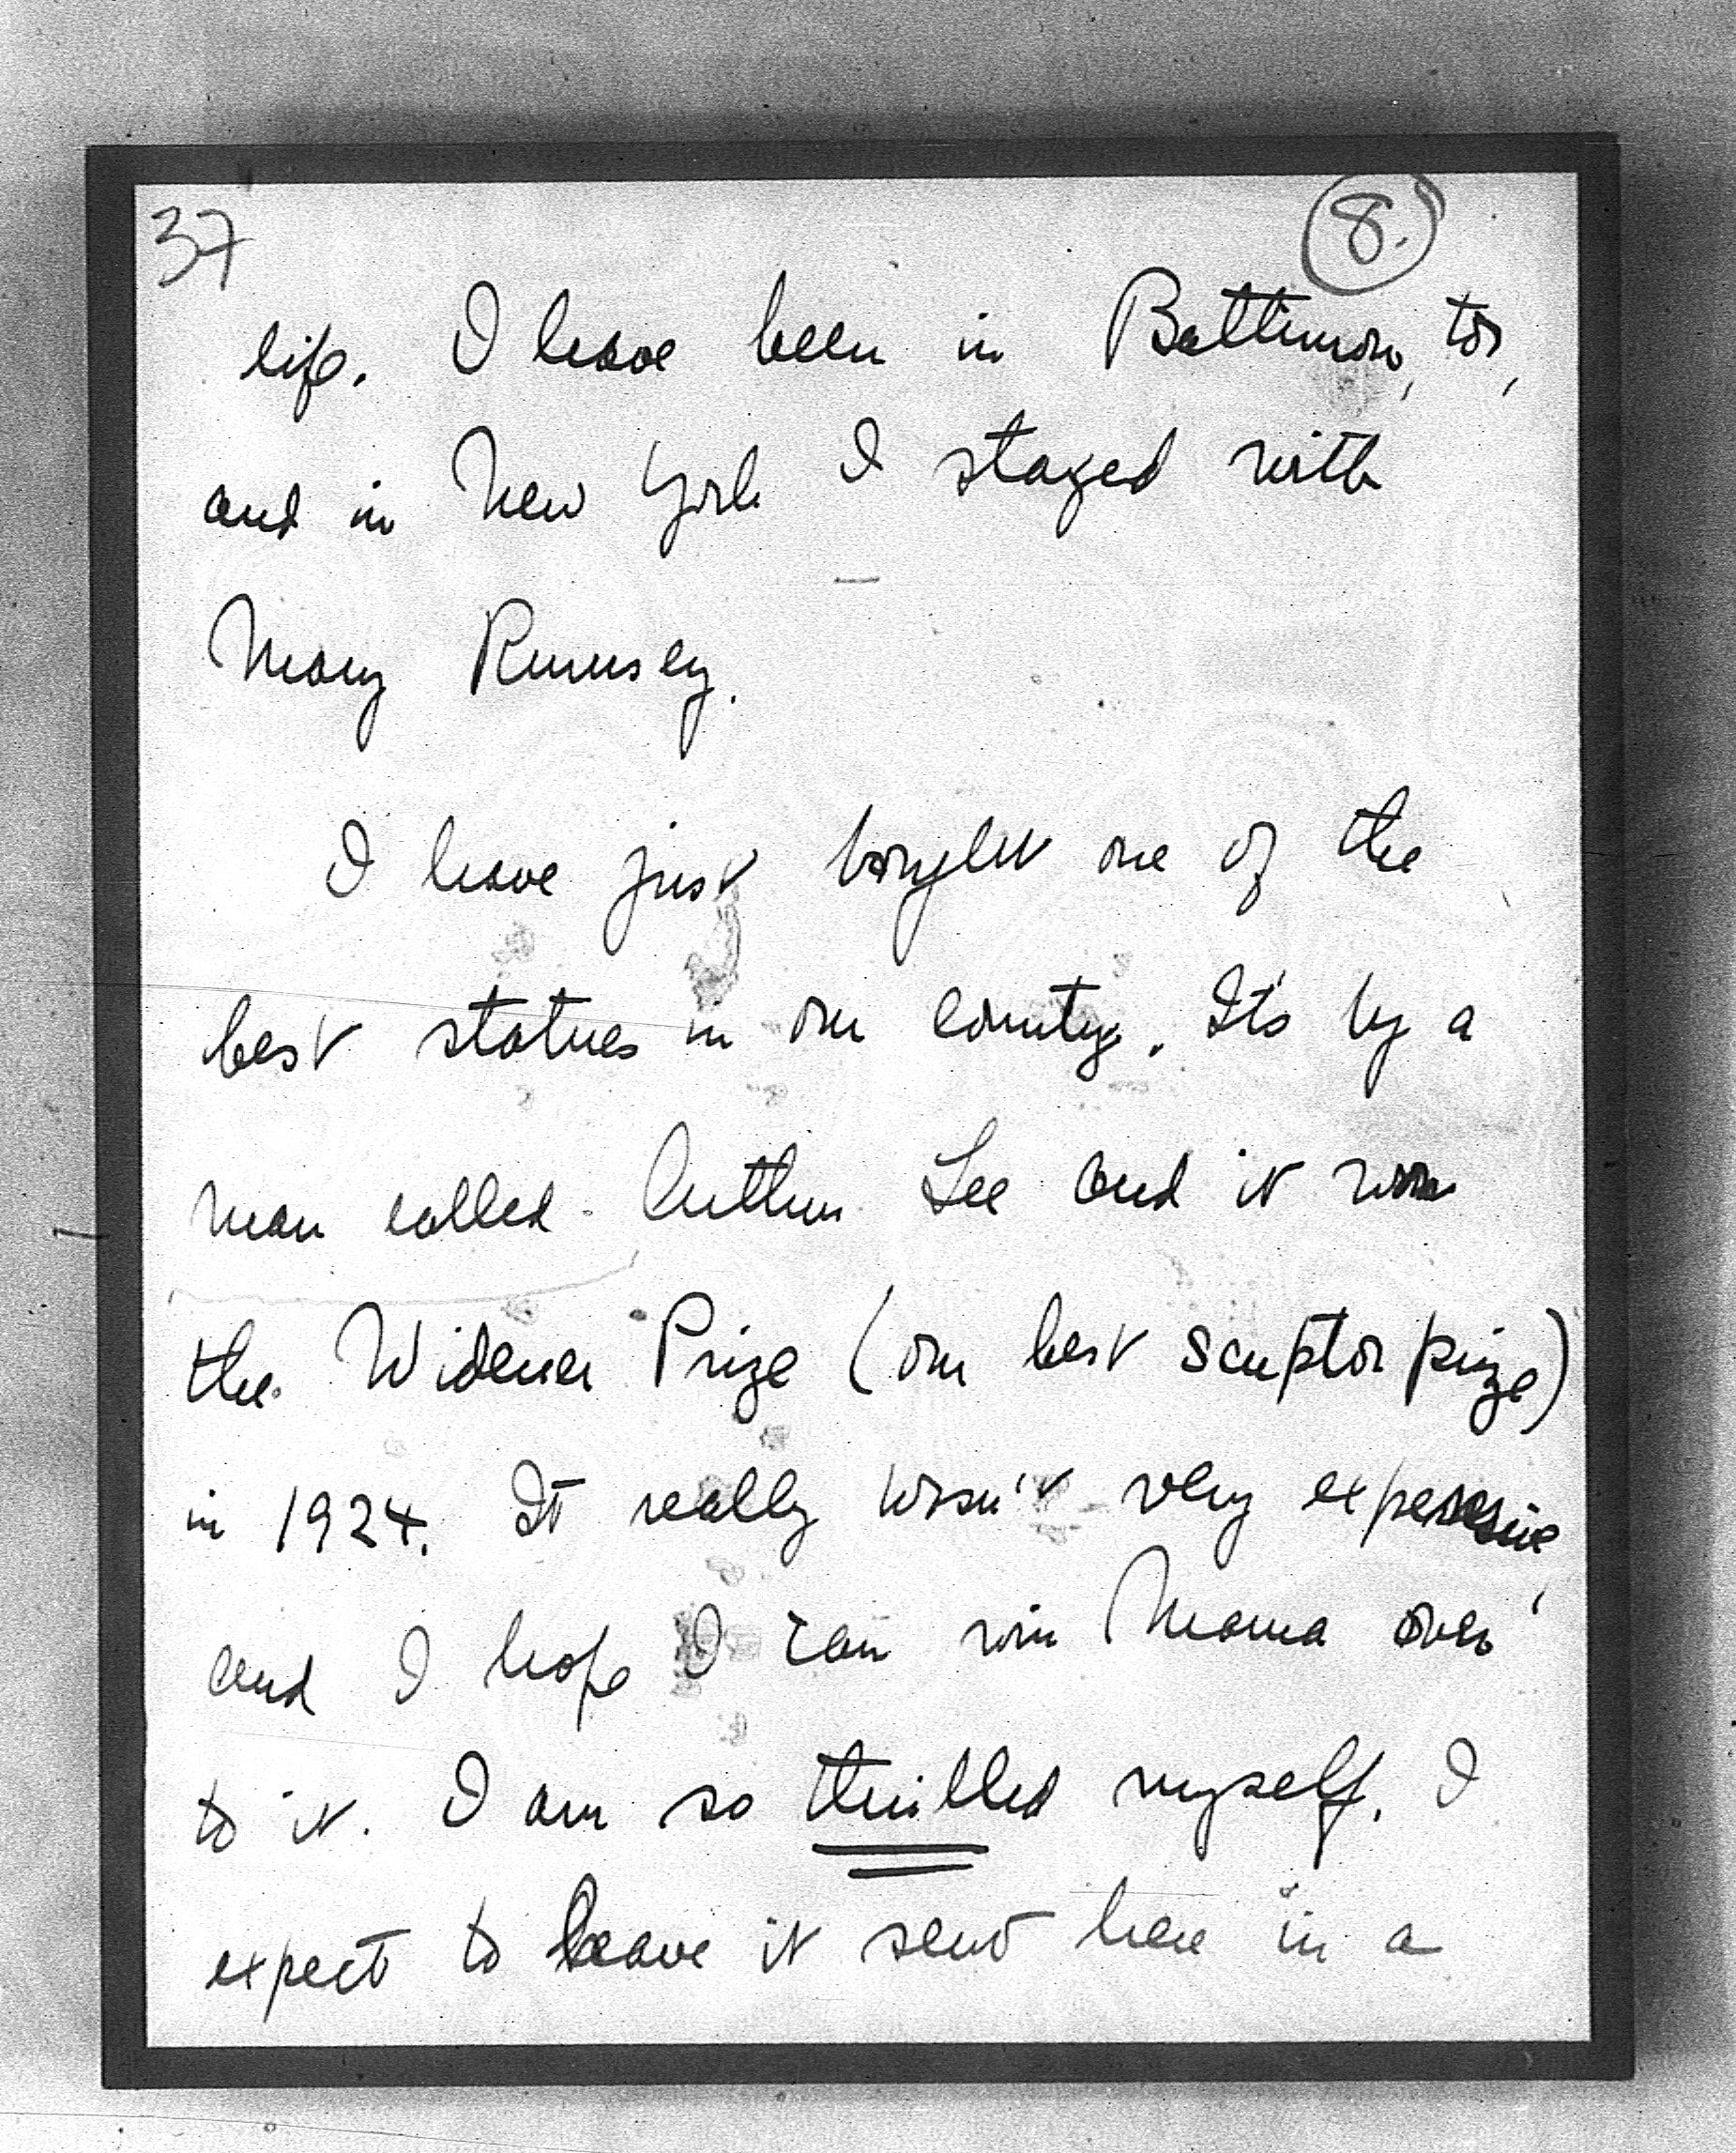 37
8.
life. I have been in Baltimore, too,
and in New York I stayed with
Mary Rumsey.
I have just bought one of the
best statues in our country. It's by a
man called Arthur Lee and it won
the Widener Prize (our best scuptor prize)
in 1924. It really wasn't very expensive,
and I hope I can win Mama over
to it. I am so thrilled myself. I
expect to have it sent here in a